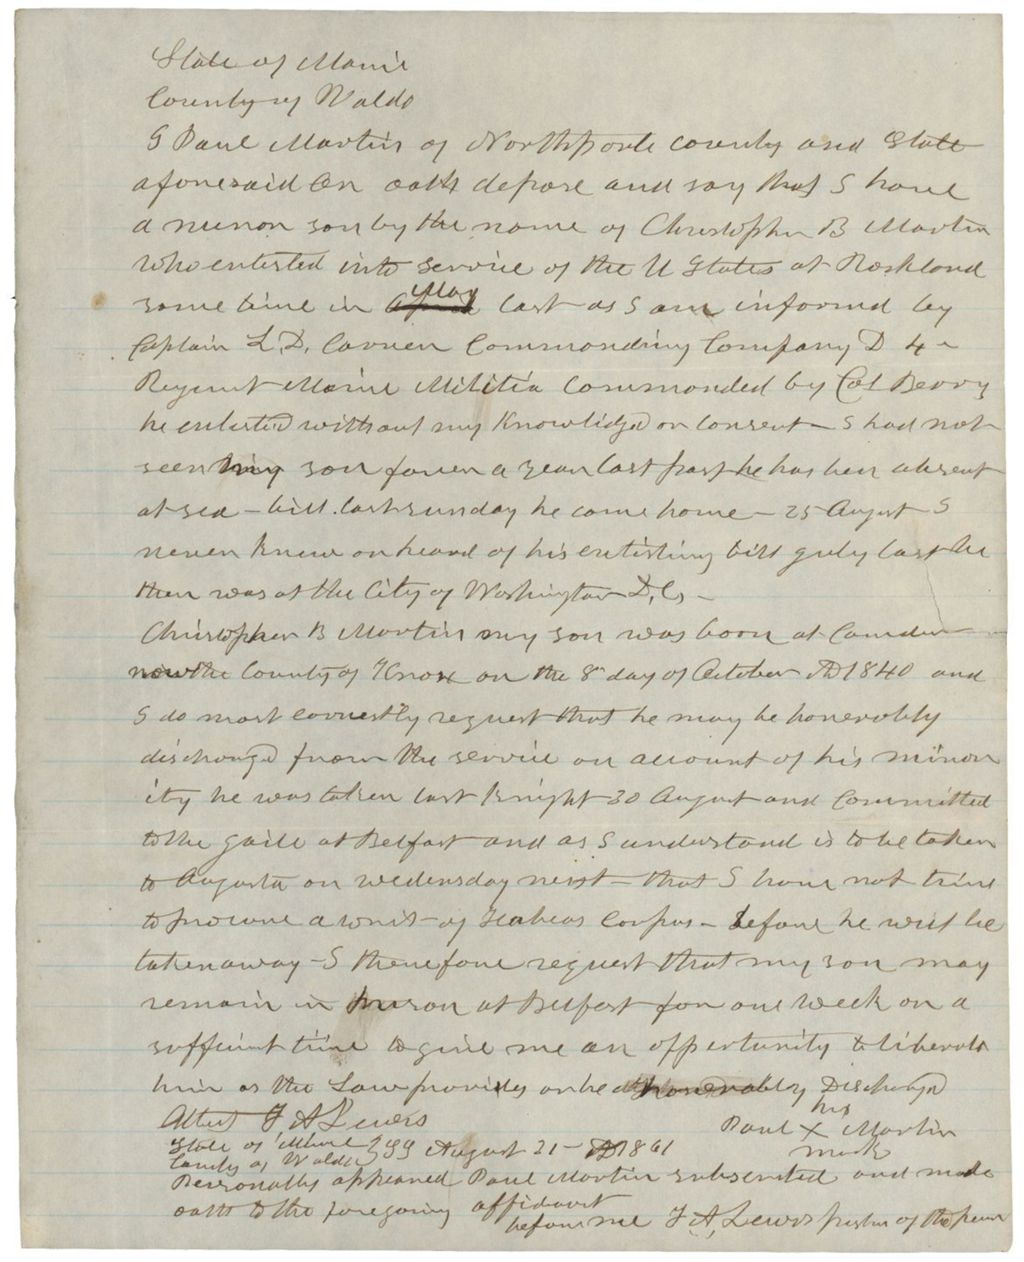 State of Maine
County of Waldo
I Paul Martin of Northport county and State
aforesaid on oath depose and say that I have
a minor son by the name of Christopher B Martin
who entisted into service of the U States at Rockland
some time in May last as I am informed by
Captain L. D. Carver Commanding Company D 4
Regiment Maine Militia Commanded by Col Berry
he enlisted without my Knowledge or consent - I had not
seen my son for a year last past he has ben absent
at sea - till last sunday he come home - 25 August I
never knew or heard of his entisting till july last he
then was at the City of Washington D. C, -
Christopher B Martin my son was born at Camden
now the County of Knox on the 8th day of October AD 1840 and
I do most earnestly request that he may be honerably
discharged from the service on account of his minor
ity he was taken last night 30 August and Committed
to the gaile at Belfast and as I understand is to be taken
to Augusta on wedensday next - that I have not time
to procure a writ of Habeas Corpus - before he will be
taken away - I therefore request that my son may
remain in prison at Belfast for one week or a
sufficint time to give me an oppertunity to liberate
him as the Law provides or he honerably Discharged
Attest F A Lewis
his
Paul X Martin
mark
State of Maine
County of Waldo } SS August 21 - AD 1861
Personally appeared Paul Martin subscribed and made
oath to the foregoing affidavit
before me F. A. Lewis justice of the peace